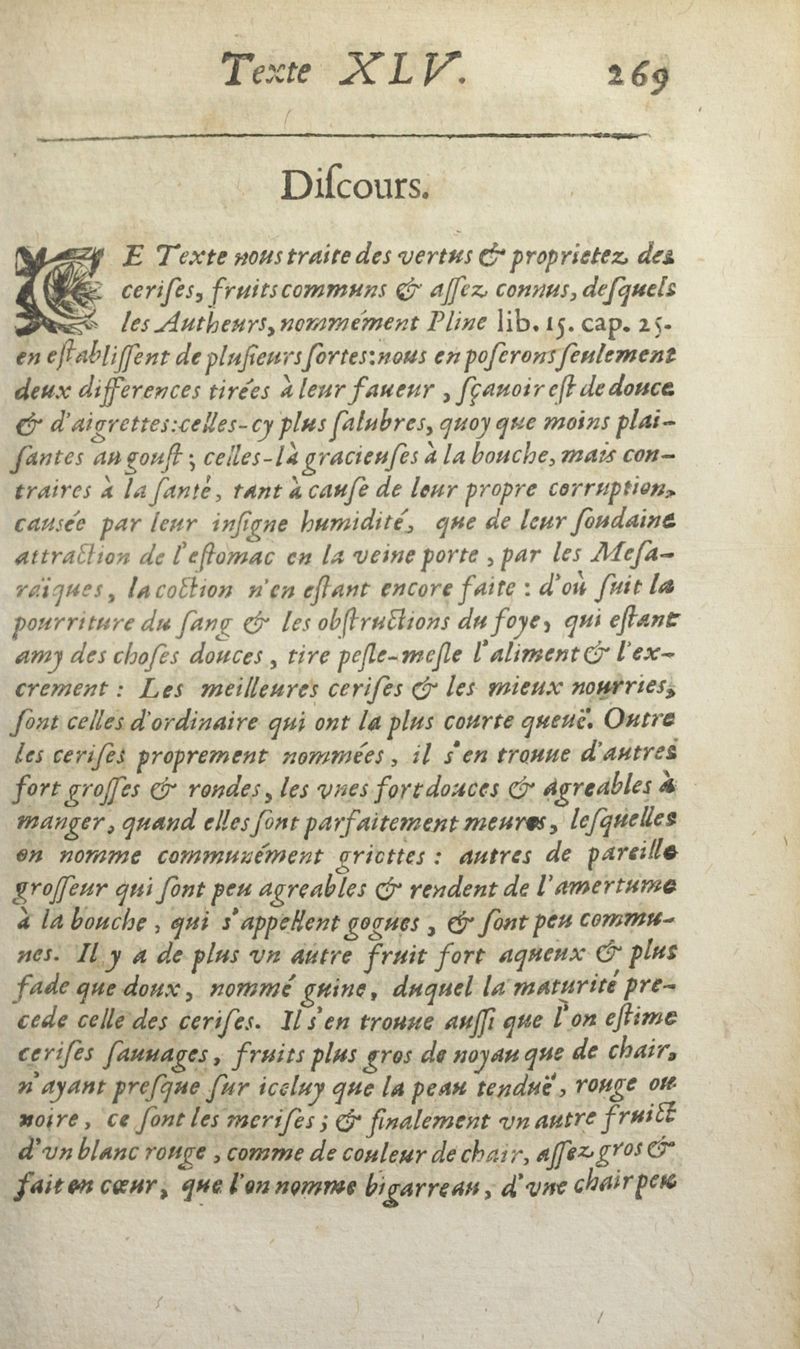 Texte XLV. 269
Diſcours.
CE Texte nous traite des vertus & proprietez des
ceriſes, fruits communs & aſſez connus, deſquels
les Autheurs, nommément Pline lib. 15. cap. 25.
en eſtabliſſent de pluſieurs ſortes: nous en poſerons ſeulement
deux differences tirées à leur faueur, ſçauoir eſt de douce
& d'aigrettes: celles-cy plus ſalubres, quoy que moins plai-
ſantes au gouſt; celles-là gracieuſes à la bouche, mais con-
traires à la ſanté, tant à cauſe de leur propre corruption,
causée par leur inſigne humidité, que de leur ſoudaine
attraction de l'eſtomac en la veine porte, par les Meſa-
raïques, la coction n'en eſtant encore faite: d'où ſuit la
pourriture du ſang & les obſtructions du foye, qui eſtant
amy des choſes douces, tire peſle-meſle l'aliment & l'ex-
crement: Les meilleures ceriſes & les mieux nourries,
ſont celles d'ordinaire qui ont la plus courte queuë. Outre
les ceriſes proprement nommées, il s'en trouue d'autres
fort groſſes & rondes, les vnes fort douces & agreables à
manger, quand elles ſont parfaitement meures, leſquelles
on nomme communément griottes: autres de pareille
groſſeur qui ſont peu agreables & rendent de l'amertume
à la bouche, qui s'appellent gogues, & ſont peu commu-
nes. Il y a de plus vn autre fruit fort aqueux & plus
fade que doux, nommé guine, duquel la maturité pre-
cede celle des ceriſes. Il s'en trouue auſſi que l'on eſtime
ceriſes ſauuages, fruits plus gros de noyau que de chair,
n'ayant preſque ſur iceluy que la peau tenduë, rouge ou
noire, ce ſont les meriſes; & finalement vn autre fruict
d'vn blanc rouge, comme de couleur de chair, aſſez gros &
fait en cœur, que l'on nomme bigarreau, d'vne chair peu